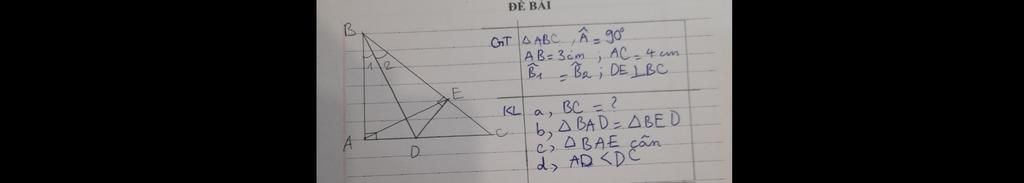 ĐỀ BÀI
B
1 2
E
A
D
C
GT △ABC , Â = 90°
AB = 3cm ; AC = 4cm
B̂₁ = B̂₂ ; DE ⊥ BC
KL a, BC = ?
b, △BAD = △BED
c, △BAE cân
d, AD < DC